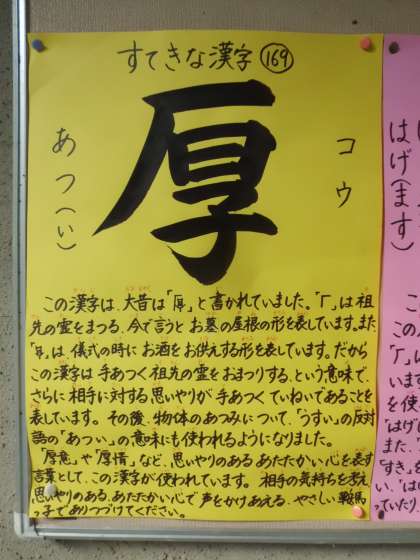 すてきな漢字 169
厚
コウ
あつ(い)
この漢字は、大昔は「厚」と書かれていました。「厂」は祖
先の霊をまつる、今で言うとお墓の屋根の形を表しています。また、
は 儀式の時にお酒をお供えする形を表しています。だから
この漢字は手あつく祖先の霊をおまつりする、という意味で、
さらに 相手に対する思いやりが手あつくていねいであることを
表しています。その後、物体のあつみについて、「うすい」の反対
語の「あつい」の意味にも使われるようになりました。
「厚意」や「厚情」など、思いやりのあるあたたかい心を表す
言葉として、この漢字が使われています。相手の気持ちを考え
思いやりのある、あたたかい心で声をかけあえる、やさしい鞍馬
っ子でありつづけてください。
はげ(ます)